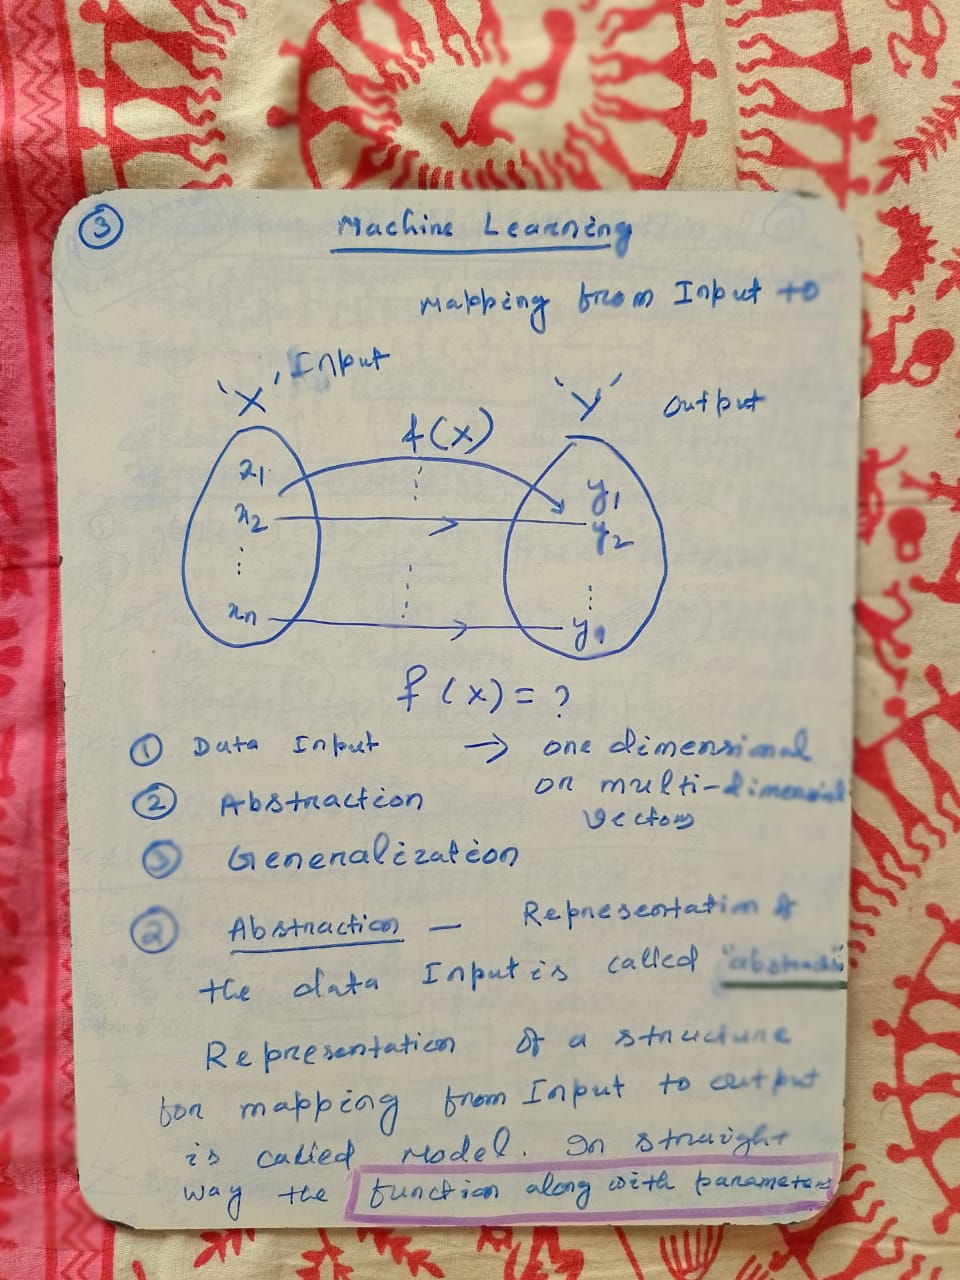 ③ Machine Learning
Mapping from Input to
'X' Input
'Y' Output
f(x)
x1 y1
x2 y2
⋮ ⋮
xn y
f(x) = ?
① Data Input → one dimensional
or multi-dimensional
vectors
② Abstraction
③ Generalization
② Abstraction — Representation of
the data Input is called "abstraction"
Representation of a structure
for mapping from Input to output
is called Model. In straight
way the function along with parameters